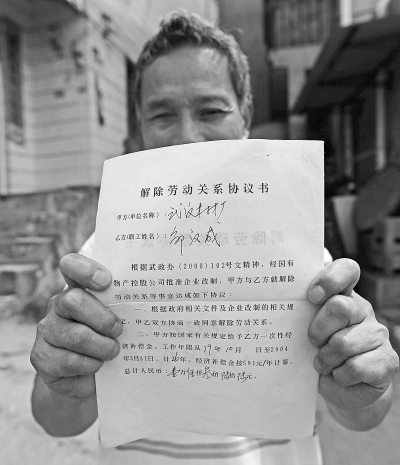 解除劳动关系协议书
甲方(单位名称):武汉木材厂
乙方(职工姓名):邹汉成
根据武政办(2000)102号文精神,经国有
物产控股公司批准企业改制,甲方与乙方就解除
劳动关系等事宜达成如下协议:
一、根据政府相关文件及企业改制的相关规
定,甲乙双方协商一致同意解除劳动关系。
二、甲方按国家有关规定给予乙方一次性经
济补偿金。工作年限从79年10月 日至2004
年3月31日,计 年,经济补偿金按591元/年计算,
总计人民币: